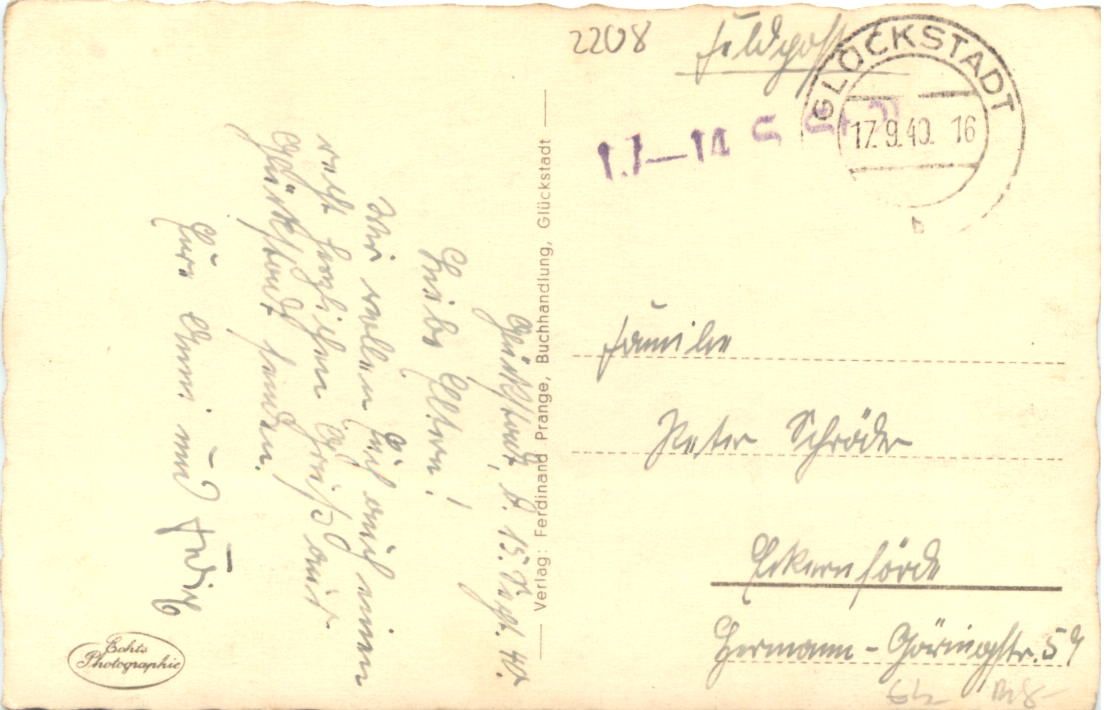 2208
Feldpost
GLÜCKSTADT
17.9.40. 16
Glückstadt, d. 15. Sept. 40.
Liebe Eltern!
Wir wollen Euch auch einen
recht herzlichen Gruß aus
Glückstadt senden.
Eure Anni und
Verlag: Ferdinand Prange, Buchhandlung, Glückstadt
Familie
Peter Schröder
Eckernförde
Hermann-Göringstr. 57
Echte
Photographie